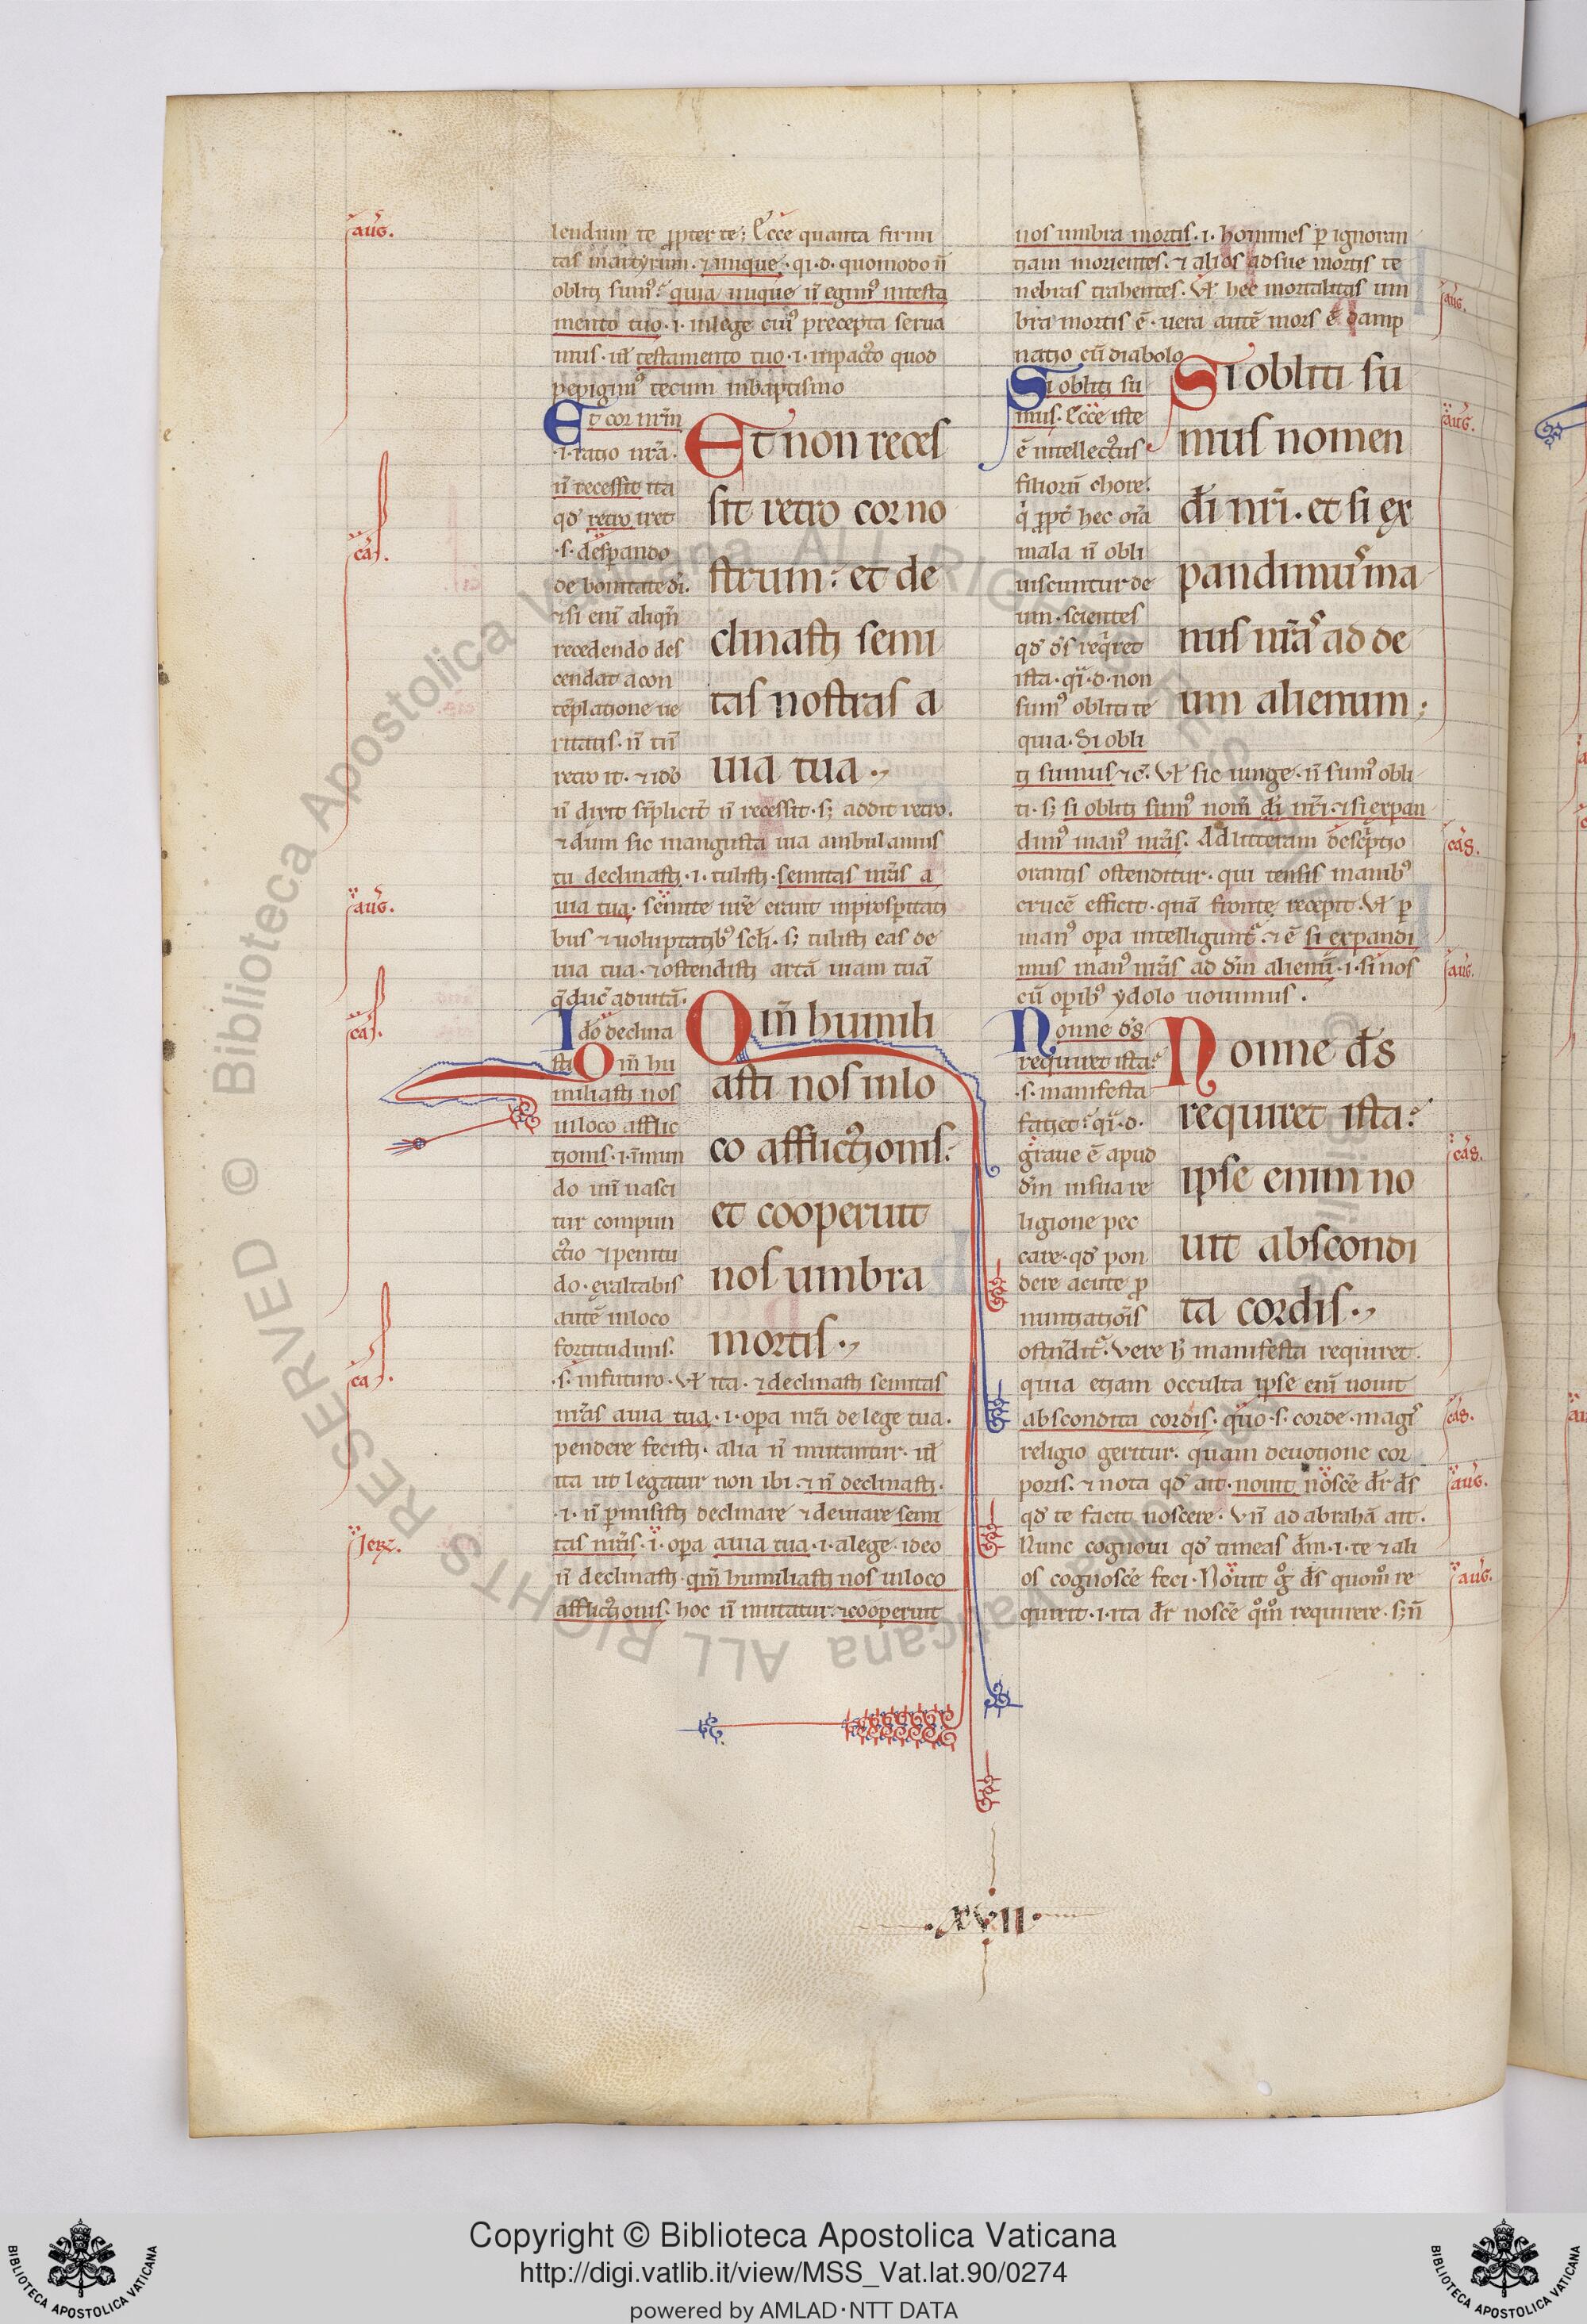 aug̃.
lendum te ꝓpter te; Ecce quanta firmi
tas martyrum. ⁊ inique. q͛i. d. quomodo ñ
obliti sumꝰ. quia inique ñ egimꝰ intesta
mento tuo. i. inlege cuiꝰ precepta serua
mus. ul̃ testamento tuo. i. inpacto quod
pepigimꝰ tecum inbaptismo
Et cor nr̃m
.i. ratio nr̃a.
ñ recessit ita
qd̃ retro iret
.s. desperando
de bonitate di.
⁊ si eni aliqñ
recedendo des
cendat acon
tẽplatione ue
ritatis. ñ tñ
retro it. ⁊ ido
Et non reces
sit retro cor no
strum: et de
clinasti semi
tas nostras a
uia tua.
ñ dixit sĩplicit̃ ñ recessit. sꝫ addit retro.
⁊ dum sic inangusta uia ambulamus
tu declinasti. i. tulisti. semitas nr̃as a
uia tua. semite nr̃e erant inprosperitati
bus ⁊ uoluptatibꝰ scl̃i. sꝫ tulisti eas de
uia tua. ⁊ ostendisti artã uiam tuã
q̃ duc̃ aduitã.
Ido declina
sti Qm̃ hu
miliasti nos
inloco afflic
tionis. i. ĩmun
do uñ nasci
tur compun
ctio ⁊ penitu
do. exaltabis
autẽ inloco
fortitudinis.
Qm̃ humili
asti nos inlo
co afflictionis:
et cooperuit
nos umbra
mortis.
.s. infuturo. Vl̃ ita. ⁊ declinasti semitas
nr̃as auia tua. i. opera nr̃a de lege tua.
pendere fecisti. alia ñ mutantur. ul̃
ita ut legatur non ibi. ⁊ ñ declinasti.
.i. ñ ꝑmisisti declinare ⁊ deuiare semi
tas nr̃as. i. opa auia tua. i. alege. ideo
ñ declinasti. qm̃ humiliasti nos inloco
afflictionis. hoc ñ mutatur. ⁊ cooperuit
ca.
aug̃.
ca.
ca.
Jerꝫ.
nos umbra mortis. i. homines ꝑ ignoran
tiam morientes. ⁊ alios adsue mortis te
nebras trahentes. Vl̃ hec mortalitas um
bra mortis ẽ. uera autẽ mors ẽ damp
natio cũ diabolo
Si obliti su
mus. Ecce iste
ẽ intellectus
filiorũ chore.
q̃ ꝓpt̃ hec om̃a
mala ñ obli
uiscuntur de
um. scientes
qd̃ d̃s req̃ret
ista. q͛i. d. non
sumꝰ obliti te
quia. Si obli
Si obliti su
mus nomen
di nr̃i. et si ex
pandimus ma
nus nr̃as ad de
um alienum;
ti sumus ⁊ c̃. Vl̃ sic iunge. ñ sumꝰ obli
ti. sꝫ si obliti sumꝰ nom̃ di nr̃i. ⁊ si expan
dimꝰ manꝰ nr̃as. Ad litteram descriptio
orantis ostenditur. qui tensis manibꝰ
crucẽ efficit. quã fronte recepit. Vl̃ ꝑ
manꝰ opera intelligunt̃. ⁊ ẽ si expandi
mus manꝰ nr̃as ad dm̃ alienũ. i. si nos
cũ operibꝰ ydolo uouimus.
Nonne d̃s
requiret ista.
.s. manifesta
faciet. q͛i. d.
graue ẽ apud
dm̃ insua re
ligione pec
care. qd̃ pon
dere acute ꝓ
nuntiatiõis
Nonne d̃s
requiret ista:
ipse enim no
uit abscondi
ta cordis.
ostẽdit̃. Vere h̃ manifesta requiret.
quia etiam occulta ipse eni nouit
abscondita cordis. quo. s. corde. magis
religio geritur. quam deuotione cor
poris. ⁊ nota qd̃ ait. nouit. noscẽ dr̃ d̃s
qd̃ te facit noscere. Vñ ad abrahã ait.
Nunc cognoui qd̃ timeas dm̃. i. te ⁊ ali
os cognoscẽ feci. Nouit g̃ d̃s quom̃ re
quirit. i. ita dr̃ noscẽ qm̃ requirere. sꝫ ñ
aug̃.
aug̃.
cas.
aug̃.
cas.
cas.
aug̃.
aug̃.
.XVII.
Copyright © Biblioteca Apostolica Vaticana
http://digi.vatlib.it/view/MSS_Vat.lat.90/0274
powered by AMLAD·NTT DATA
BIBLIOTECA APOSTOLICA VATICANA
BIBLIOTECA APOSTOLICA VATICANA
© Biblioteca Apostolica Vaticana ALL RIGHTS RESERVED